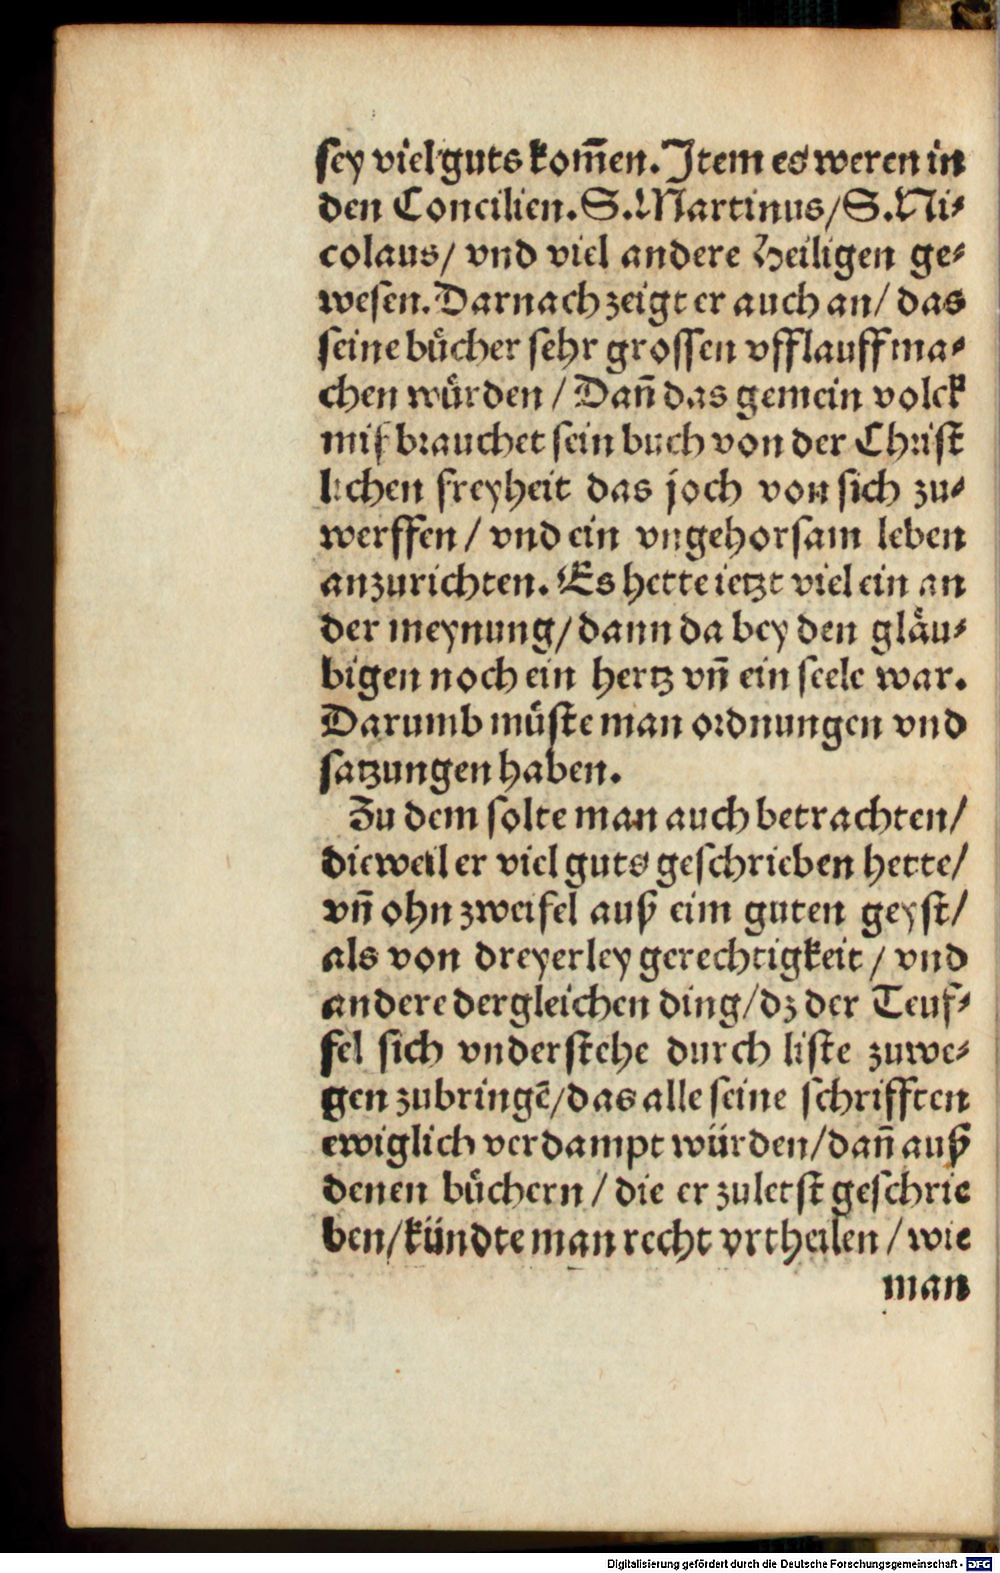 sey viel guts kom̃en. Item es weren in
den Concilien. S. Martinus/ S. Ni⸗
colaus/ vnd viel andere Heiligen ge⸗
wesen. Darnach zeigt er auch an/ das
seine bůcher sehr grossen vfflauff ma⸗
chen wůrden / Dañ das gemein volck
mißbrauchet sein buch von der Christ
lichen freyheit das joch von sich zu⸗
werffen / vnd ein vngehorsam leben
anzurichten. Es hette ietzt viel ein an
der meynung/ dann da bey den gläu⸗
bigen noch ein hertz vñ ein seele war.
Darumb můste man ordnungen vnd
satzungen haben.
Zu dem solte man auch betrachten/
dieweil er viel guts geschrieben hette/
vñ ohn zweifel auß eim guten geyst/
als von dreyerley gerechtigkeit / vnd
andere dergleichen ding/ dz der Teuf⸗
fel sich vnderstehe durch liste zuwe⸗
gen zubringē/ das alle seine schrifften
ewiglich verdampt würden/ dañ auß
denen bůchern / die er zuletst geschrie
ben/ kündte man recht vrtheilen / wie
man
Digitalisierung gefördert durch die Deutsche Forschungsgemeinschaft - DFG